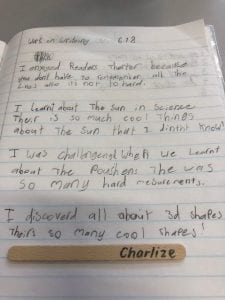 Work on Wednesday 6.12
I enjoyed Readers Theater because
you don't have to rememember all the
lines and it's not to hard.
I learnt about The Sun in Science
Their is so much cool Things
about The Sun that I dindnt Know!
I was challengend When we learnt
about The The was
so many hard mesurments.
I discoverd all about 3d shapes
Theirs so many cool shapes!
Charlize